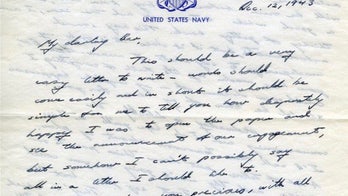 UNITED STATES NAVY
Dec. 12, 1943
My darling Bar,
This should be a very
easy letter to write — words should
come easily and in short it should be
simple for me to tell you how desperately
happy I was to open the paper and
see the announcement of our engagement,
but somehow I can't possibly say
all in a letter I should like to.
you precious, with all